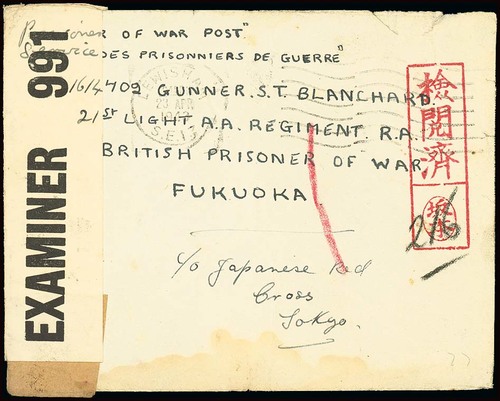 Prisoner OF WAR POST"
Service DES PRISONNIERS DE GUERRE"
LEWISHAM
23 APR
S.E.13
1614709 GUNNER. S.T. BLANCHARD.
21st LIGHT A.A. REGIMENT. R.A.
BRITISH PRISONER OF WAR
FUKUOKA
c/o Japanese Red
Cross
Tokyo.
EXAMINER 991
検閲済
216